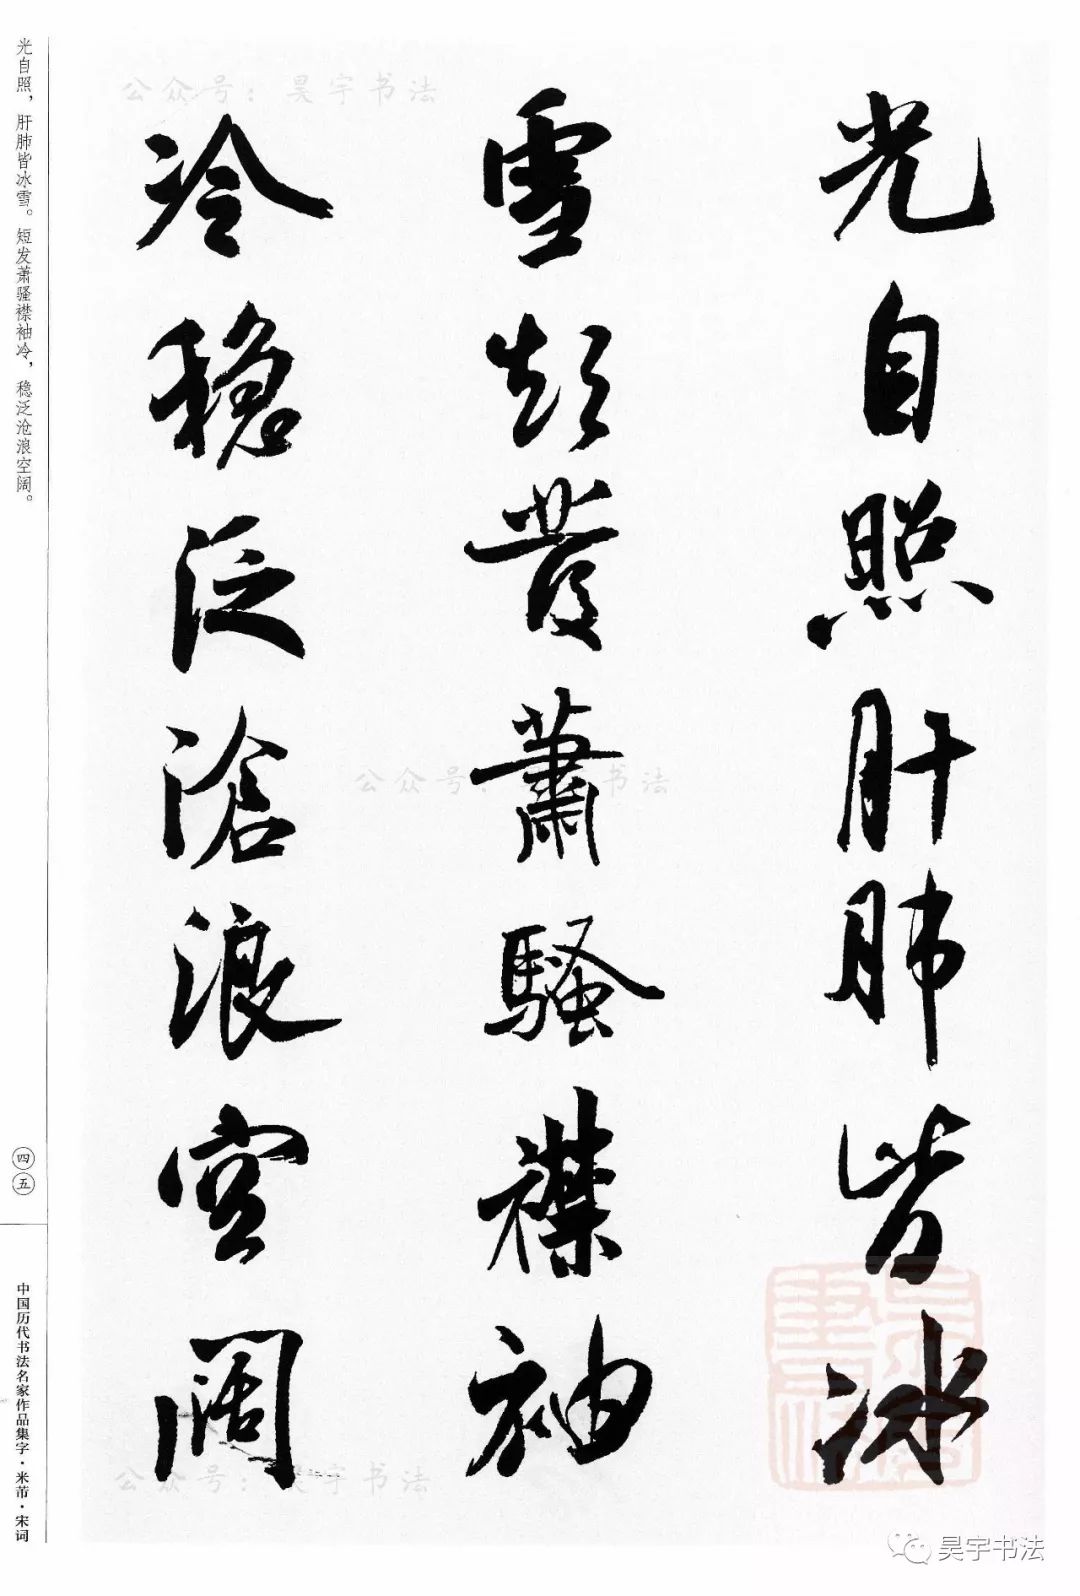 光自照肝肺皆冰
雪短發蕭騷襟袖
冷穩泛滄浪空闊
光自照，肝肺皆冰雪。短发萧骚襟袖冷，稳泛沧浪空阔。
四五
中国历代书法名家作品集字·米芾·宋词
公众号：昊宇书法
公众号：书法
公众号：昊宇书法
昊宇书法